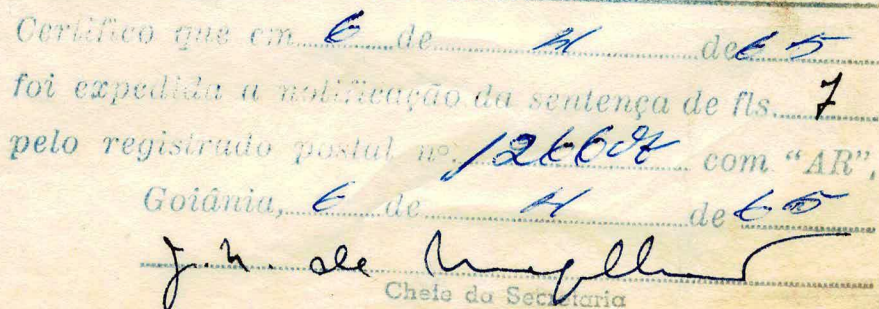 Certifico que em 6 de 4 de 65
foi expedida a notificação da sentença de fls. 7
pelo registrado postal nº com "AR",
Goiânia, 6 de 4 de 65
J. N. de Magalhães
Chefe da Secretaria